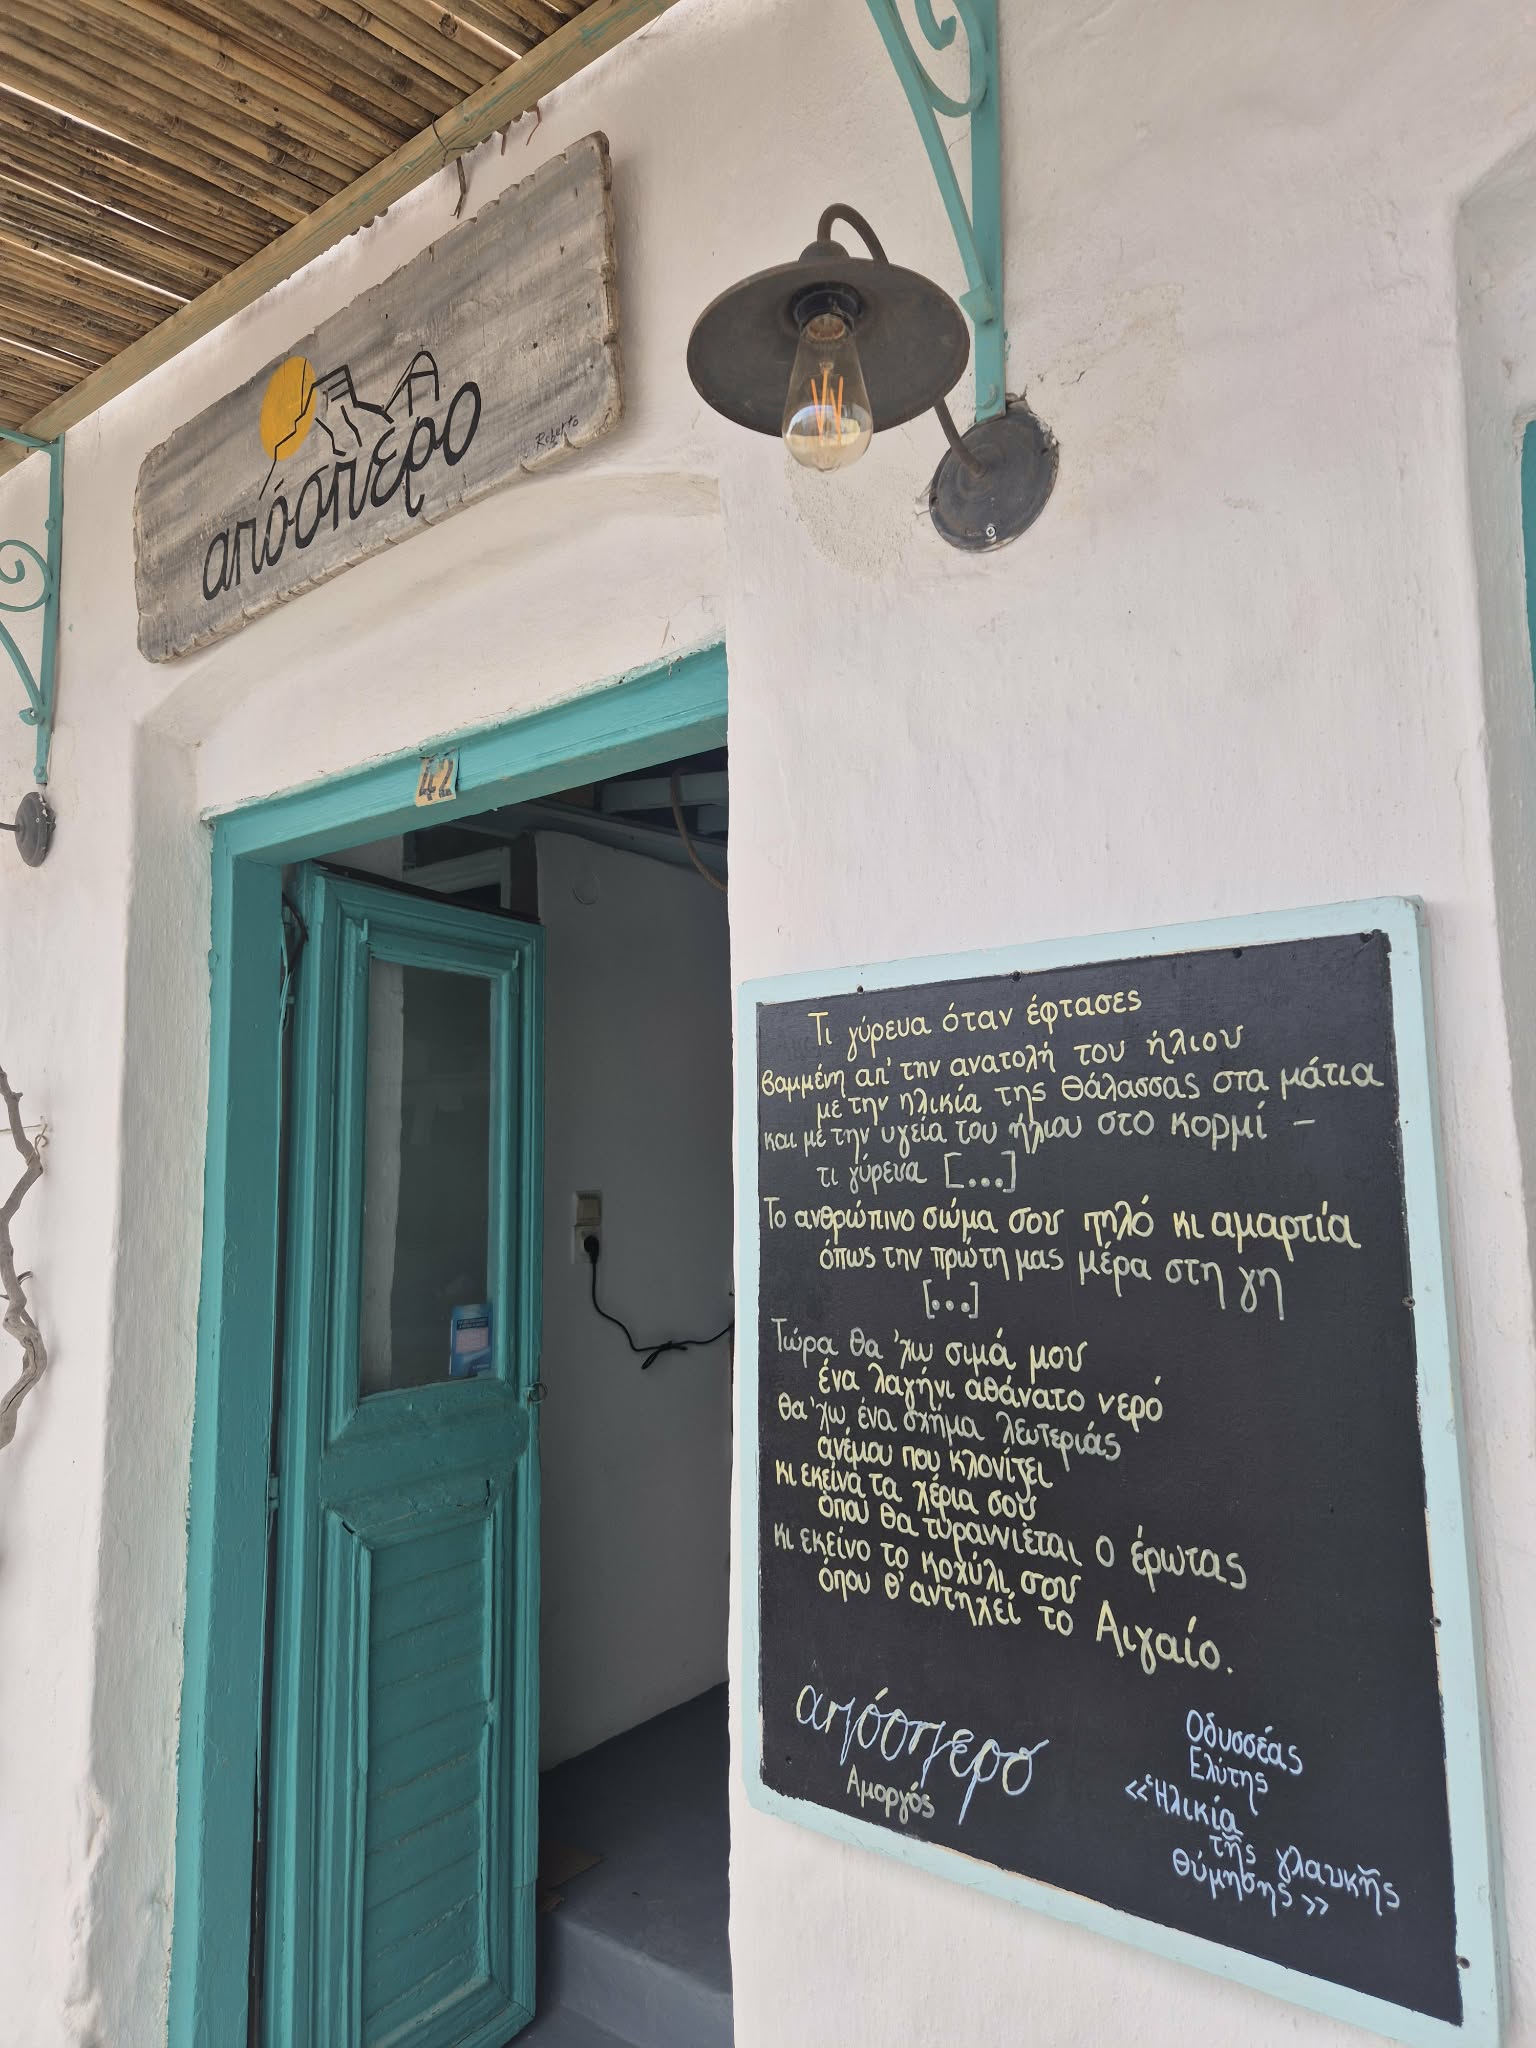 απόσπερο
Roberto
42
Τι γύρευα όταν έφτασες
βαμμένη απ' την ανατολή του ήλιου
με την ηλικία της θάλασσας στα μάτια
και με την υγεία του ήλιου στο κορμί –
τι γύρευα [...]
Το ανθρώπινο σώμα σου πηλό κι αμαρτία
όπως την πρώτη μας μέρα στη γη
[...]
Τώρα θα 'χω σιμά μου
ένα λαγήνι αθάνατο νερό
θα 'χω ένα σχήμα λευτεριάς
ανέμου που κλονίζει
κι εκείνα τα χέρια σου
όπου θα τυραννιέται ο έρωτας
κι εκείνο το κοχύλι σου
όπου θ' αντηχεί το Αιγαίο.
απόσπερο
Αμοργός
Οδυσσέας
Ελύτης
«Ἡλικία
τῆς γλαυκῆς
θύμησης»